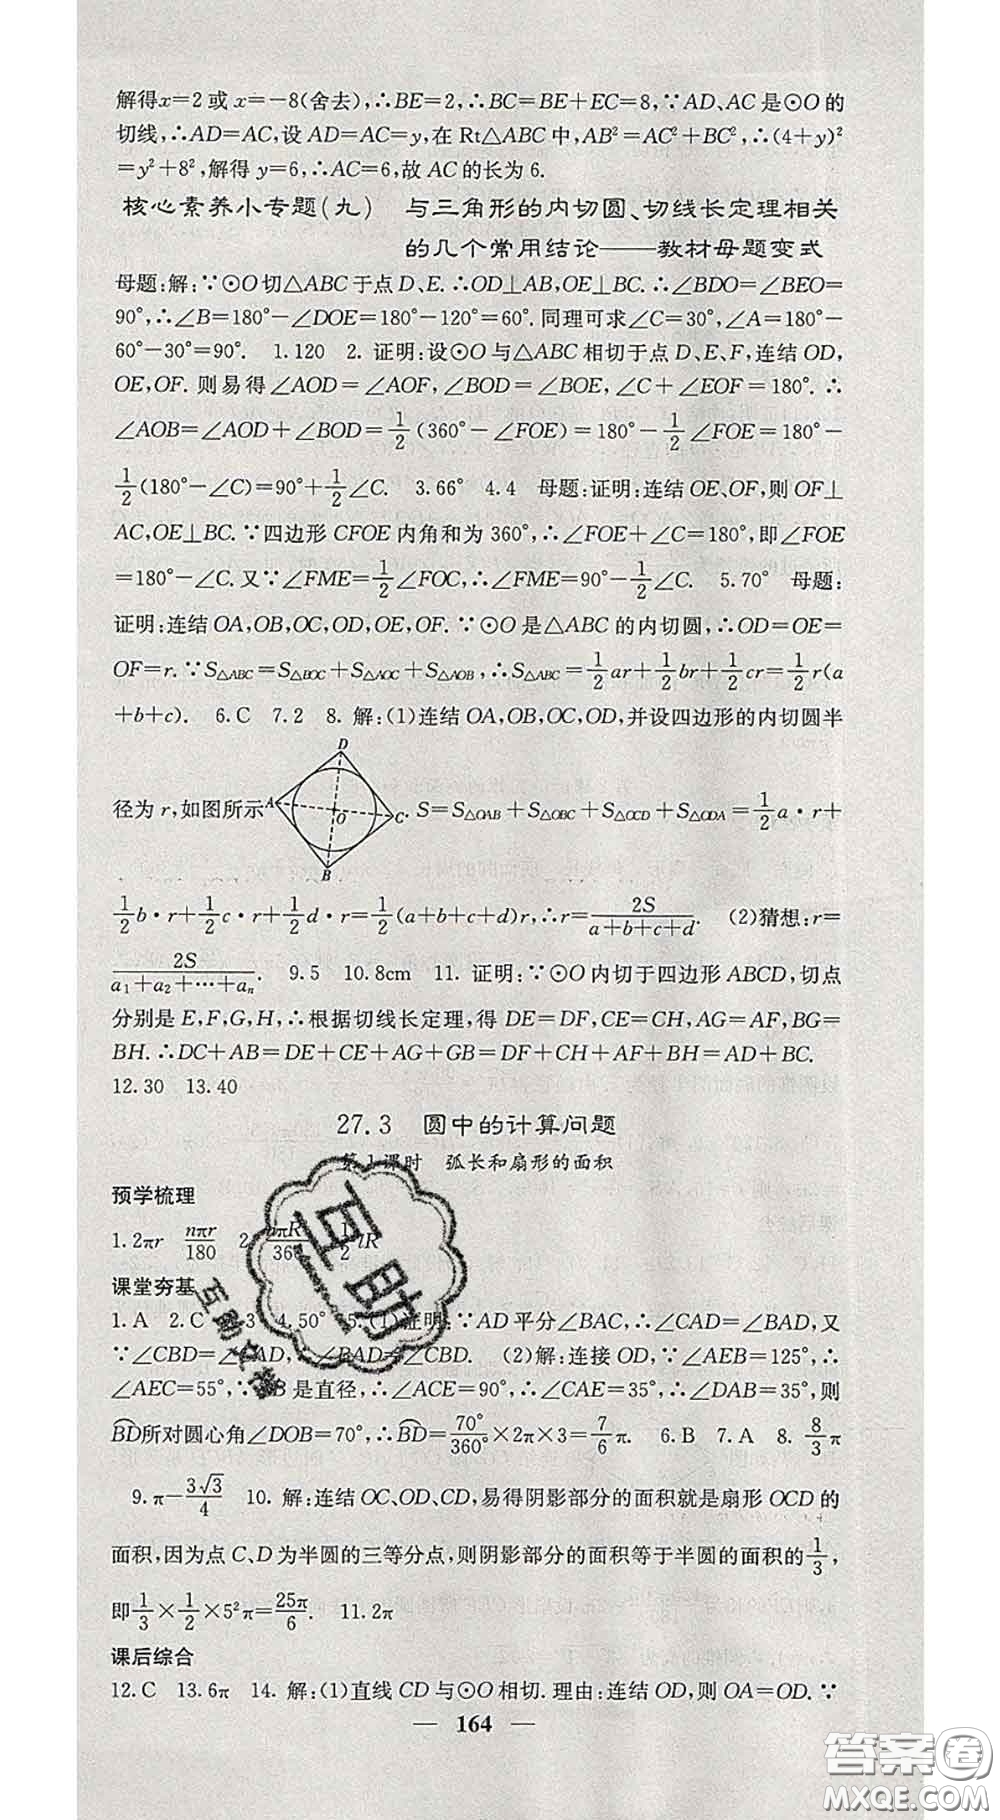 解得x=2或x=-8(舍去),∴BE=2,∴BC=BE+EC=8,∵AD、AC是⊙O的
切线,∴AD=AC,设AD=AC=y,在Rt△ABC中,AB²=AC²+BC²,∴(4+y)²
=y²+8²,解得y=6,∴AC=6,故AC的长为6.
核心素养小专题(九) 与三角形的内切圆、切线长定理相关
的几个常用结论——教材母题变式
母题:解:∵⊙O切△ABC于点D、E.∴OD⊥AB,OE⊥BC.∴∠BDO=∠BEO=
90°,∴∠B=180°-∠DOE=180°-120°=60°.同理可求∠C=30°,∠A=180°-
60°-30°=90°. 1.120 2.证明:设⊙O与△ABC相切于点D、E、F,连结OD,
OE,OF.则易得∠AOD=∠AOF,∠BOD=∠BOE,∠C+∠EOF=180°.∴
∠AOB=∠AOD+∠BOD=1/2(360°-∠FOE)=180°-1/2∠FOE=180°-
1/2(180°-∠C)=90°+1/2∠C. 3.66° 4.4 母题:证明:连结OE、OF,则OF⊥
AC,OE⊥BC.∵四边形CFOE内角和为360°,∴∠FOE+∠C=180°,即∠FOE
=180°-∠C.又∵∠FME=1/2∠FOC,∴∠FME=90°-1/2∠C. 5.70° 母题:
证明:连结OA,OB,OC,OD,OE,OF.∵⊙O是△ABC的内切圆,∴OD=OE=
OF=r.∵S△ABC=S△BOC+S△AOC+S△AOB,∴S△ABC=1/2ar+1/2br+1/2cr=1/2r(a
+b+c). 6.C 7.2 8.解:(1)连结OA,OB,OC,OD,并设四边形的内切圆半
D
A
O
C
B
径为r,如图所示. S=S△OAB+S△OBC+S△OCD+S△ODA=1/2a·r+
1/2b·r+1/2c·r+1/2d·r=1/2(a+b+c+d)r,∴r=2S/(a+b+c+d). (2)猜想:r=
2S/(a₁+a₂+…+aₙ). 9.5 10.8cm 11.证明:∵⊙O内切于四边形ABCD,切点
分别是E,F,G,H,∴根据切线长定理,得DE=DF,CE=CH,AG=AF,BG=
BH.∴DC+AB=DE+CE+AG+GB=DF+CH+AF+BH=AD+BC.
12.30 13.40
27.3 圆中的计算问题
第1课时 弧长和扇形的面积
预学梳理
1.2πr nπr/180 2. 360 1/2lR
课堂夯基
1.A 2.C 3. 4.50° 5.(1)证明:∵AD平分∠BAC,∴∠CAD=∠BAD,又
∵∠CBD=∠CAD,∴∠BAD=∠CBD. (2)解:连接OD,∵∠AEB=125°,∴
∠AEC=55°,∵AB是直径,∴∠ACE=90°,∴∠CAE=35°,∴∠DAB=35°,则
BD所对圆心角∠DOB=70°,∴BD=70°/360°×2π×3=7/6π. 6.B 7.A 8.8/3π
9.π-3√3/4 10.解:连结OC、OD、CD,易得阴影部分的面积就是扇形OCD的
面积,因为点C、D为半圆的三等分点,则阴影部分的面积等于半圆的面积的1/3,
即1/3×1/2×5²π=25π/6. 11.2π
课后综合
12.C 13.6π 14.解:(1)直线CD与⊙O相切.理由:连结OD,则OA=OD.∵
— 164 —
互助
互助文档
答案圈
MXQE.COM